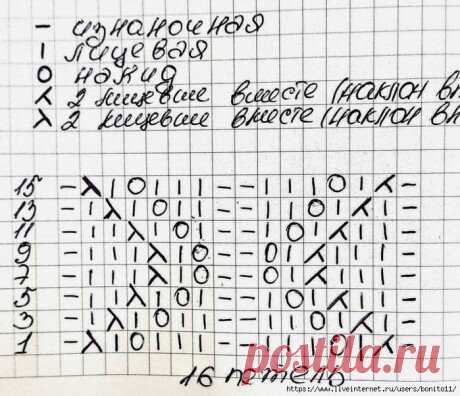 – изнаночная
I лицевая
O накид
⋌ 2 лицевые вместе (наклон вп
λ 2 лицевые вместе (наклон вп
15 – λ I O I I I – – I I I O I ⋌ –
13 – I λ I O I I – – I I O I ⋌ I –
11 – I I λ I O I – – I O I ⋌ I I –
9 – I I I λ I O – – O I ⋌ I I I –
7 – I I I λ I O – – O I ⋌ I I I –
5 – I I λ I O I – – I O I ⋌ I I –
3 – I λ I O I I – – I I O I ⋌ I –
1 – λ I O I I I – – I I I O I ⋌ –
16 петель
posta.ru
>www.liveinternet.ru/users/bonito11/